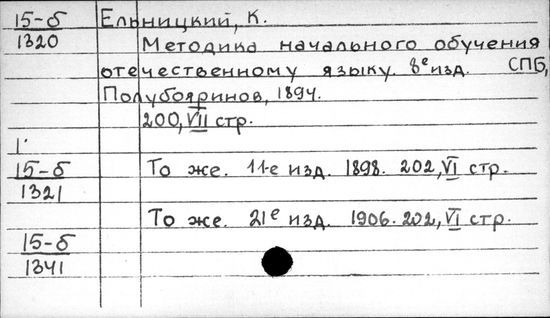 15-б Ельницкий, К.
1320 Методика начального обучения
отечественному языку. 8е изд. СПБ,
Полубояринов, 1894.
200, VII стр.
1
15-б То же. 11-е изд. 1898. 202, VI стр.
1321
То же. 21е изд. 1906. 202, VI стр.
15-б
1341